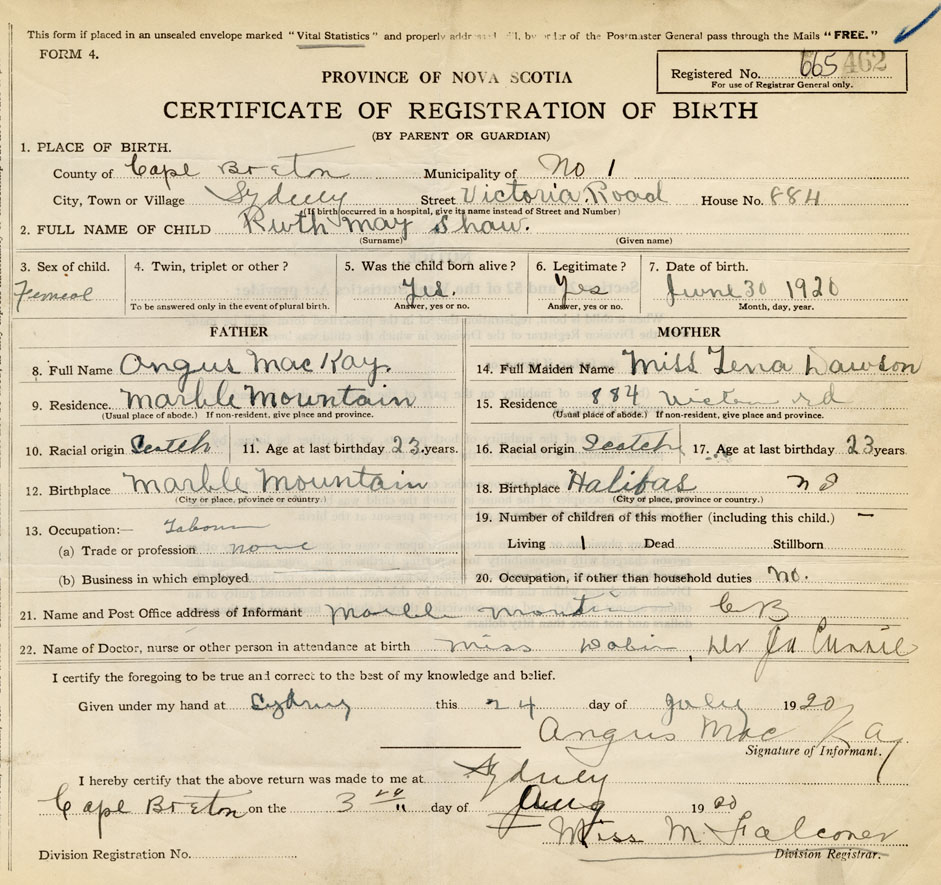 This form if placed in an unsealed envelope marked "Vital Statistics" and properly addressed will, by order of the Postmaster General pass through the Mails "FREE."
FORM 4.
PROVINCE OF NOVA SCOTIA
Registered No. 665 462
For use of Registrar General only.
CERTIFICATE OF REGISTRATION OF BIRTH
(BY PARENT OR GUARDIAN)
1. PLACE OF BIRTH.
County of Cape Breton Municipality of No 1
City, Town or Village Sydney Street Victoria Road House No. 884
(If birth occurred in a hospital, give its name instead of Street and Number)
2. FULL NAME OF CHILD Ruth May Shaw.
(Surname) (Given name)
3. Sex of child. 4. Twin, triplet or other? 5. Was the child born alive? 6. Legitimate? 7. Date of birth.
Femeal Yes. Yes June 30 1920
To be answered only in the event of plural birth. Answer, yes or no. Answer, yes or no. Month, day, year.
FATHER MOTHER
8. Full Name Angus MacKay. 14. Full Maiden Name Miss Tena Dawson
9. Residence Marble Mountain 15. Residence 884 rd
(Usual place of abode.) If non-resident, give place and province. (Usual place of abode.) If non-resident, give place and province.
10. Racial origin Scotch 11. Age at last birthday 23 years. 16. Racial origin Scotch 17. Age at last birthday 23 years
12. Birthplace Marble Mountain 18. Birthplace Halifas n S
(City or place, province or country.) (City or place, province or country.)
13. Occupation:— 19. Number of children of this mother (including this child.) –
(a) Trade or profession none Living 1 Dead Stillborn
(b) Business in which employed 20. Occupation, if other than household duties no.
21. Name and Post Office address of Informant C B
22. Name of Doctor, nurse or other person in attendance at birth Miss , Dr
I certify the foregoing to be true and correct to the best of my knowledge and belief.
Given under my hand at Sydney this 24 day of July 1920
Angus Mac Kay
Signature of Informant.
I hereby certify that the above return was made to me at Sydney
Cape Breton on the 3 day of Aug 1920
Miss M Falconer
Division Registration No. Division Registrar.